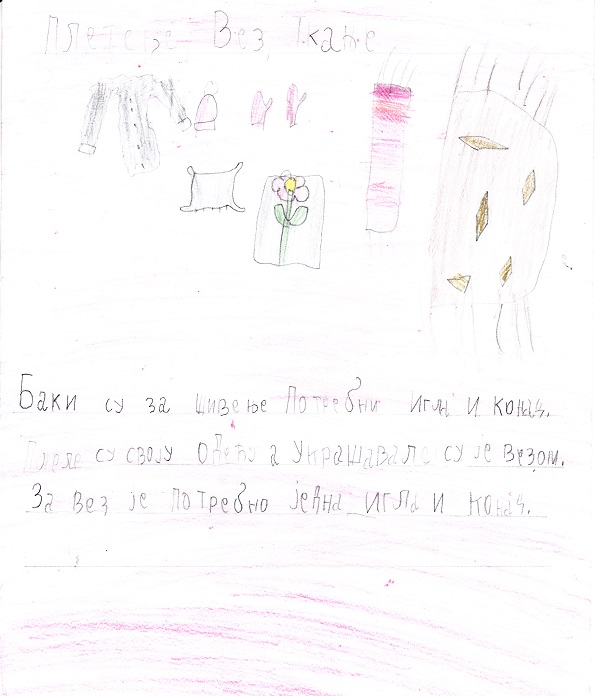 Плетење Вез Ткање
Баки су за шивење потребни игла и конац.
Плеле су своју одећу а украшавале су је везом.
За вез је потребно једна игла и конац.